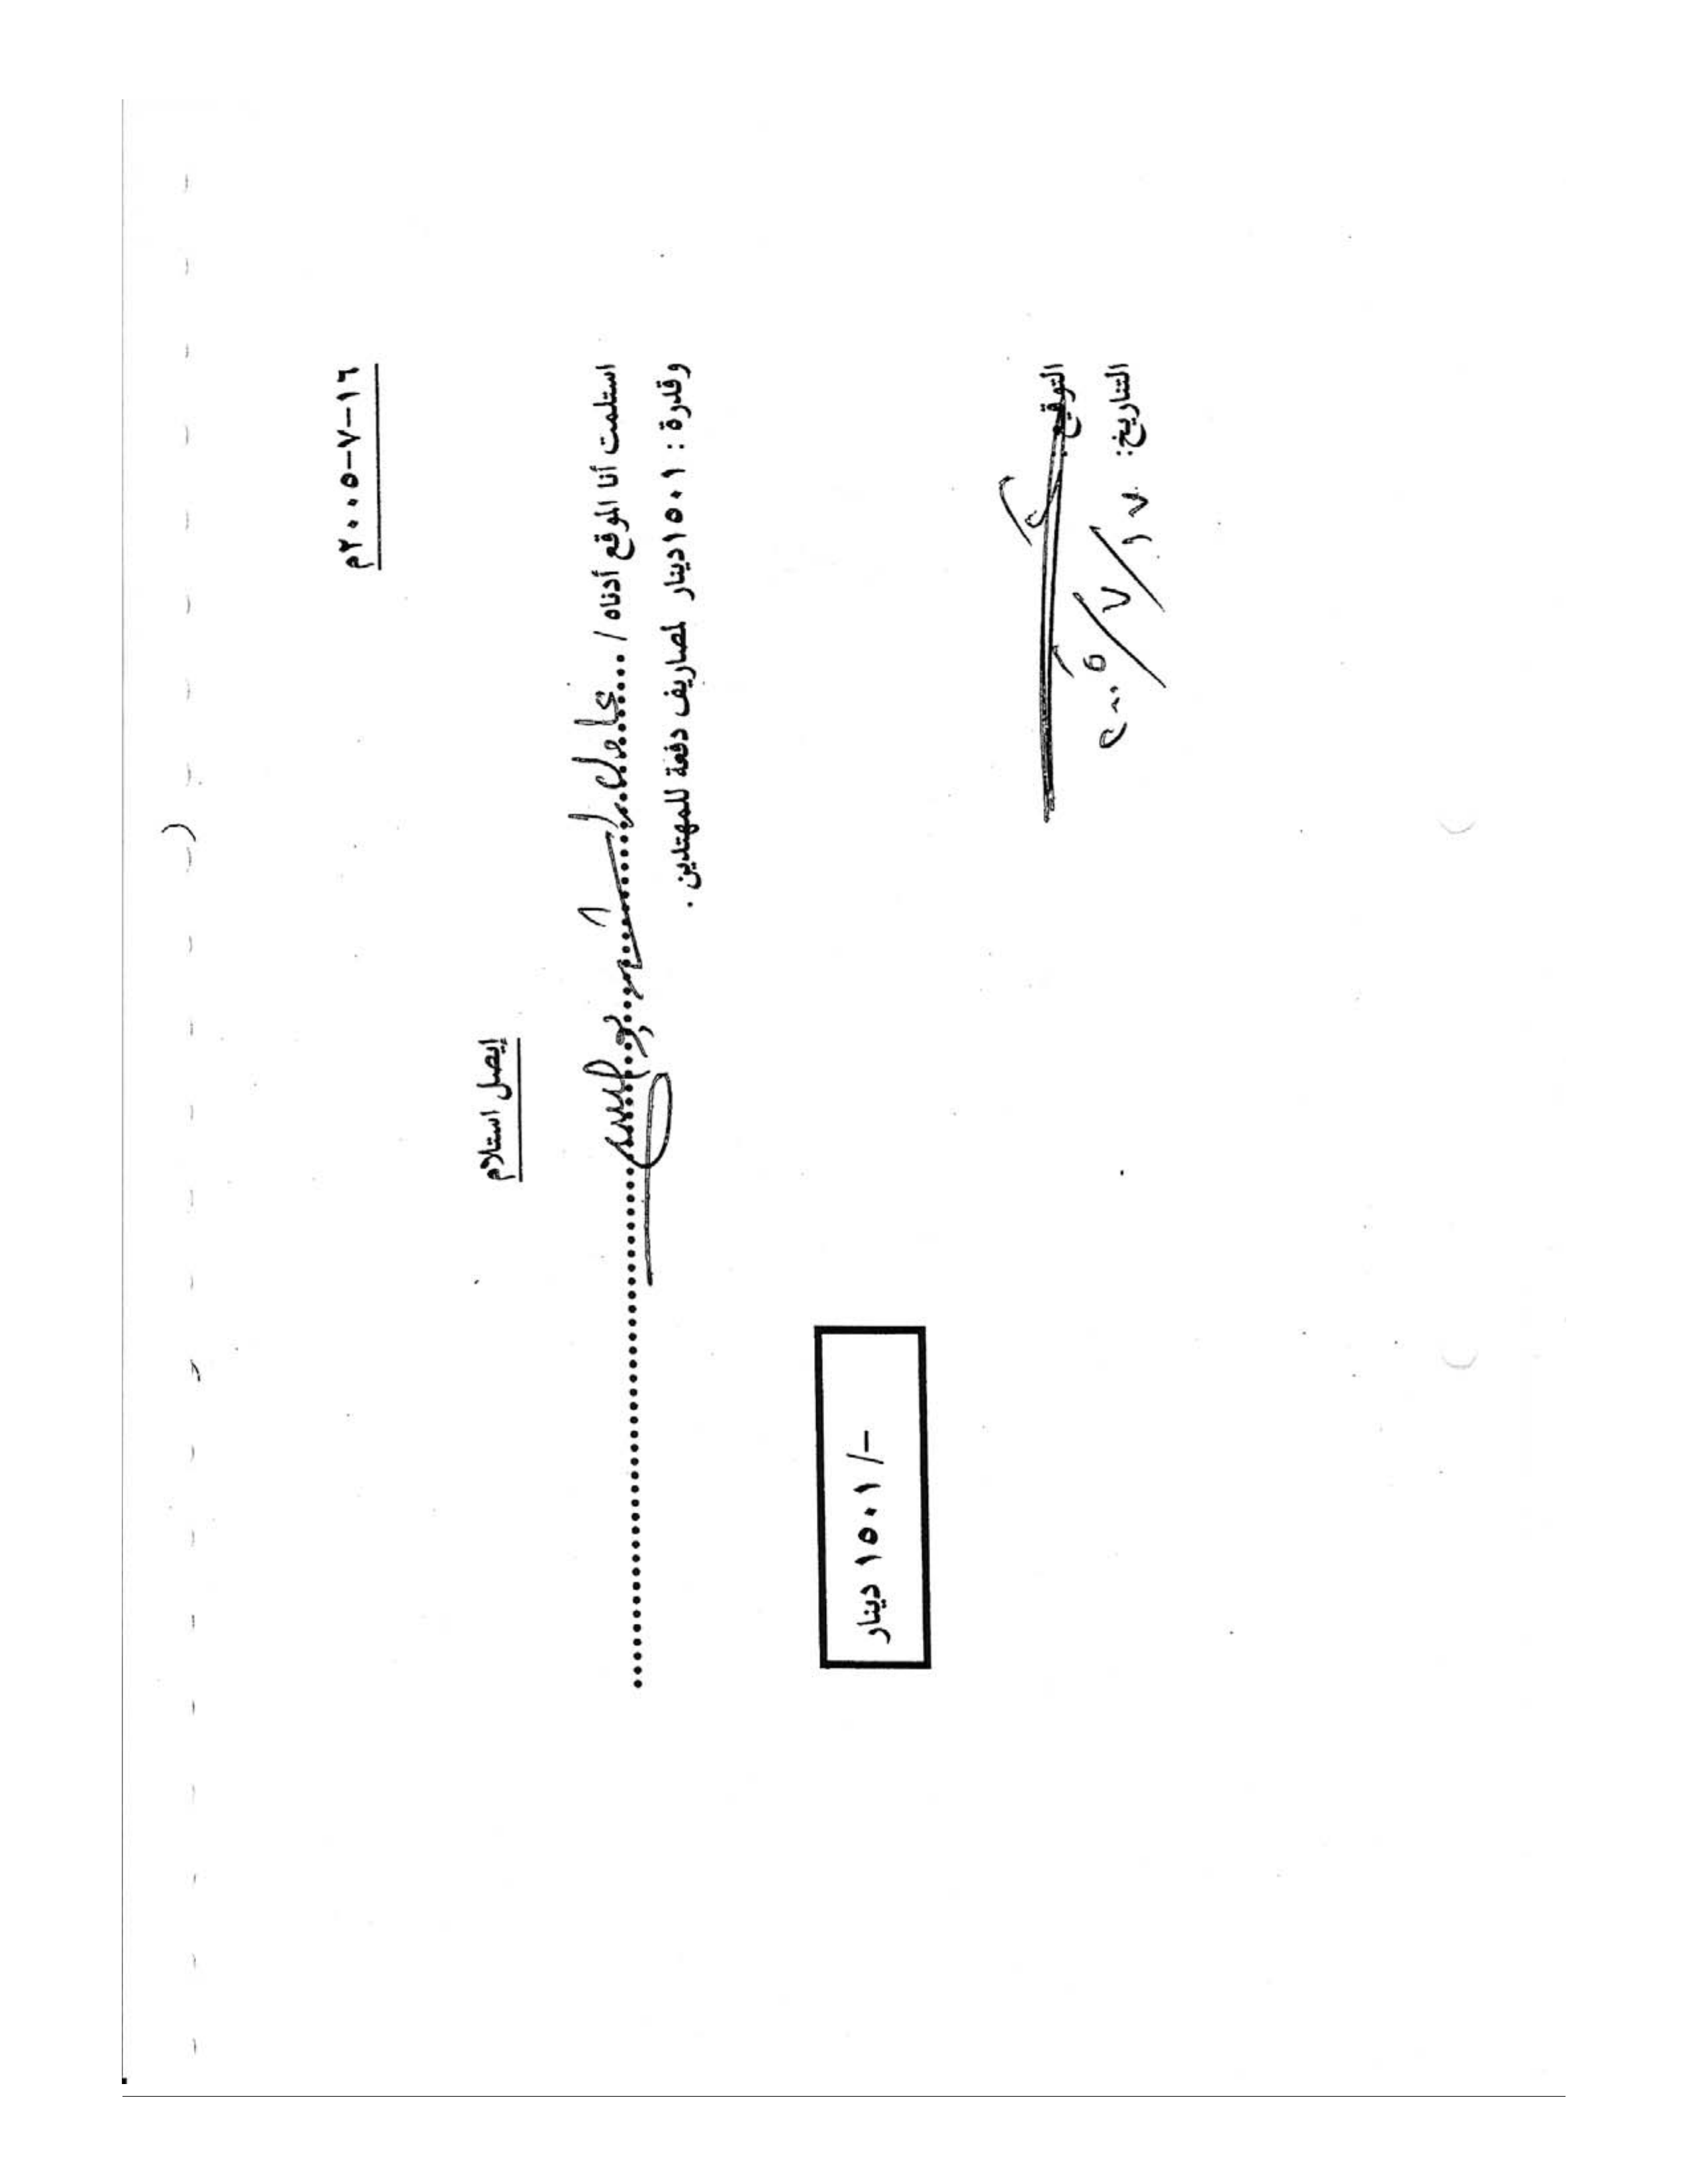 ١٦-٧-٢٠٠٥م
إيصل استلام
استلمت أنا الموقع أدناه /
وقدرة : ١٥٠١دينار لمصاريف دفعة للمهتدين .
١٥٠١ دينار /-
التوقيع:
التاريخ: ١٧/٧/٢٠٠٥